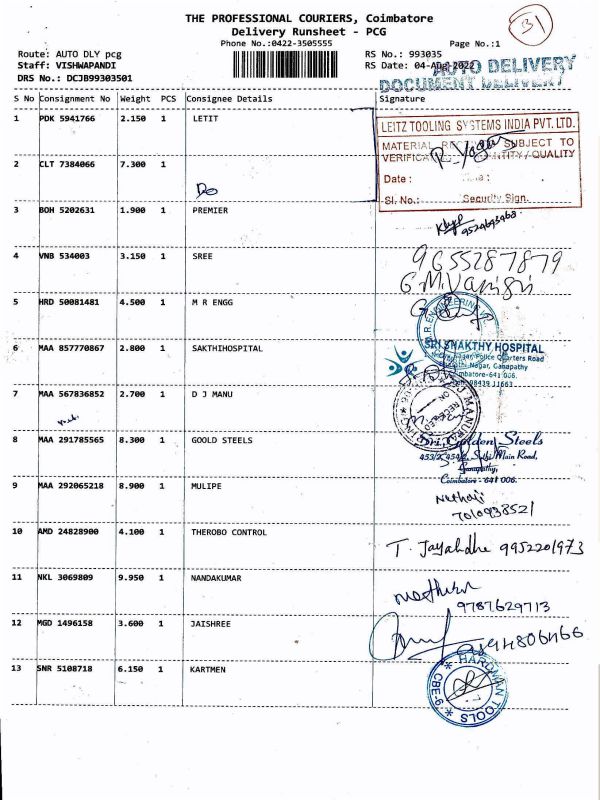 31
THE PROFESSIONAL COURIERS, Coimbatore
Delivery Runsheet - PCG
Phone No.:0422-3505555
Page No.:1
Route: AUTO DLY pcg
RS No.: 993035
Staff: VISHWAPANDI
RS Date: 04-Apr-2022
AUTO DELIVERY
DRS No.: DCJB99303501
DOCUMENT DELIVERY
S No Consignment No Weight PCS Consignee Details Signature
1 PDK 5941766 2.150 1 LETIT
LEITZ TOOLING SYSTEMS INDIA PVT. LTD.
MATERIAL SUBJECT TO
QUANTITY/QUALITY
Date :
Sl. No.: Security Sign.
2 CLT 7384066 7.300 1
Do
3 BOH 5202631 1.900 1 PREMIER
4 VNB 534003 3.150 1 SREE
9655287879
G.M.Vamsri
5 HRD 50081481 4.500 1 M R ENGG
6 MAA 857770867 2.800 1 SAKTHIHOSPITAL
SRI SHAKTHY HOSPITAL
Police Quarters Road
Nagar, Ganapathy
Coimbatore-641 006.
98439 11663
7 MAA 567836852 2.700 1 D J MANU
RECEIVED
8 MAA 291785565 8.300 1 GOOLD STEELS
Sri Golden Steels
Sathy Main Road,
Ganapathy,
Coimbatore - 641 006.
9 MAA 292065218 8.900 1 MULIPE
Nethaji
7010938521
10 AMD 24828900 4.100 1 THEROBO CONTROL
T. Jayahdhe 9952201973
11 NKL 3069809 9.950 1 NANDAKUMAR
9787629713
12 MGD 1496158 3.600 1 JAISHREE
13 SNR 5108718 6.150 1 KARTMEN
HARDMAN TOOLS
CBE-9